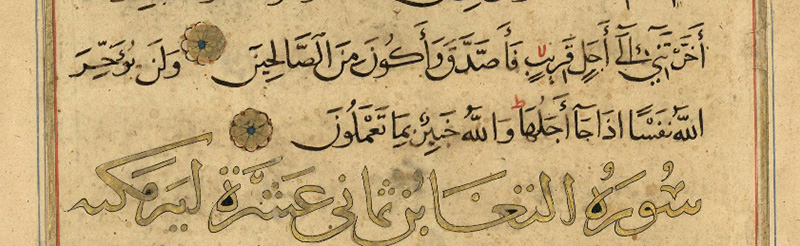 أَخَّرْتَنِي إِلَىٰ أَجَلٍ قَرِيبٍ فَأَصَّدَّقَ وَأَكُونَ مِنَ الصَّالِحِينَ وَلَن يُؤَخِّرَ
اللهُ نَفْسًا اذَا جَآ أَجَلُهَا وَاللهُ خَبِيرٌ بِمَا تَعْمَلُونَ
سُورَةُ التغابن ثماني عَشَرَة ايه مكيه